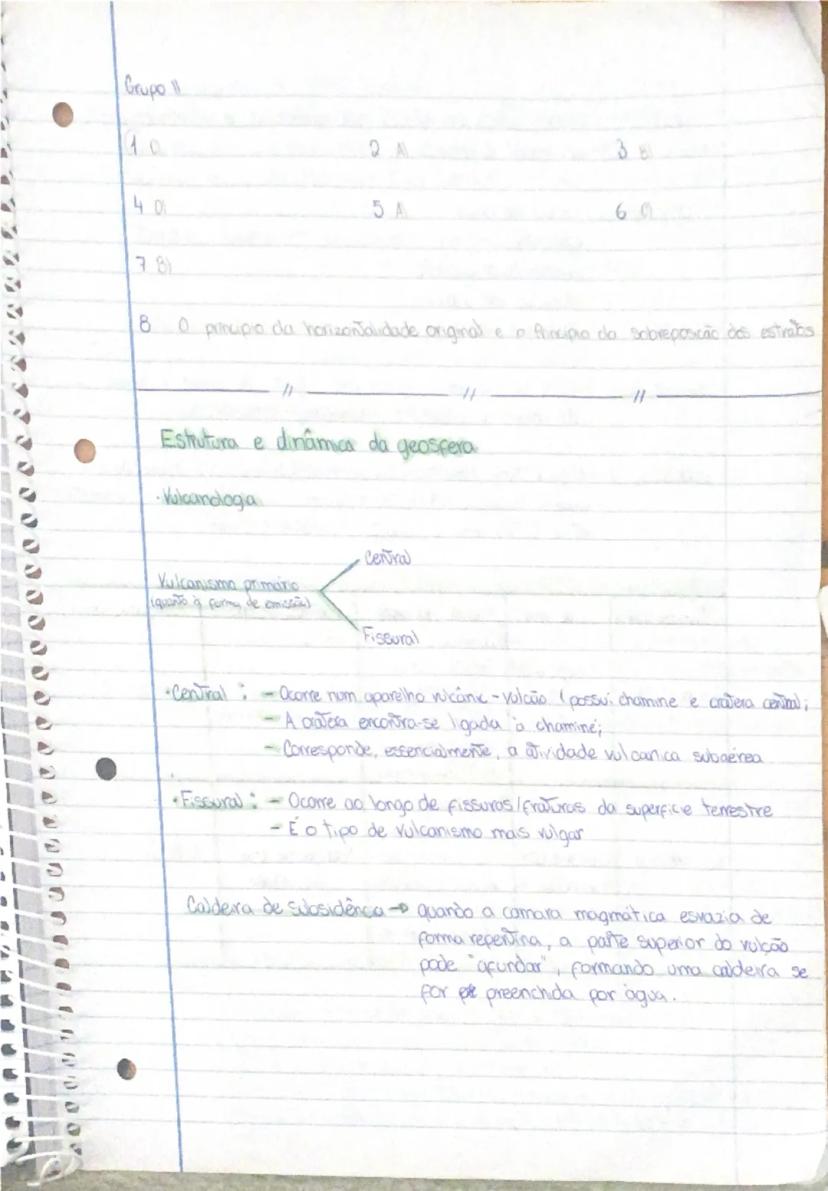 Grupo II
1 D 2 A) 3 B)
4 D) 5 A 6
7 B)
8 O principio da horizontalidade original e o Principio da sobreposição dos estratos
// // //
Estrutura e dinâmica da geosfera
· Vulcanologia
Central
Vulcanismo primário
(quanto à forma de emissão)
Fissural
· Central : - Ocorre num aparelho vulcânic - vulcão (possui chaminé e cratera central;
- A cratera encontra-se ligada à chaminé;
- Corresponde, essencialmente, a atividade vulcanica subaérea
· Fissural : - Ocorre ao longo de fissuras/fraturas da superfície terrestre
- É o tipo de vulcanismo mais vulgar
Caldeira de subsidência → quando a camara magmática esvazia de
forma repentina, a parte superior do vulcão
pode "afundar", formando uma caldeira se
for preenchida por água.